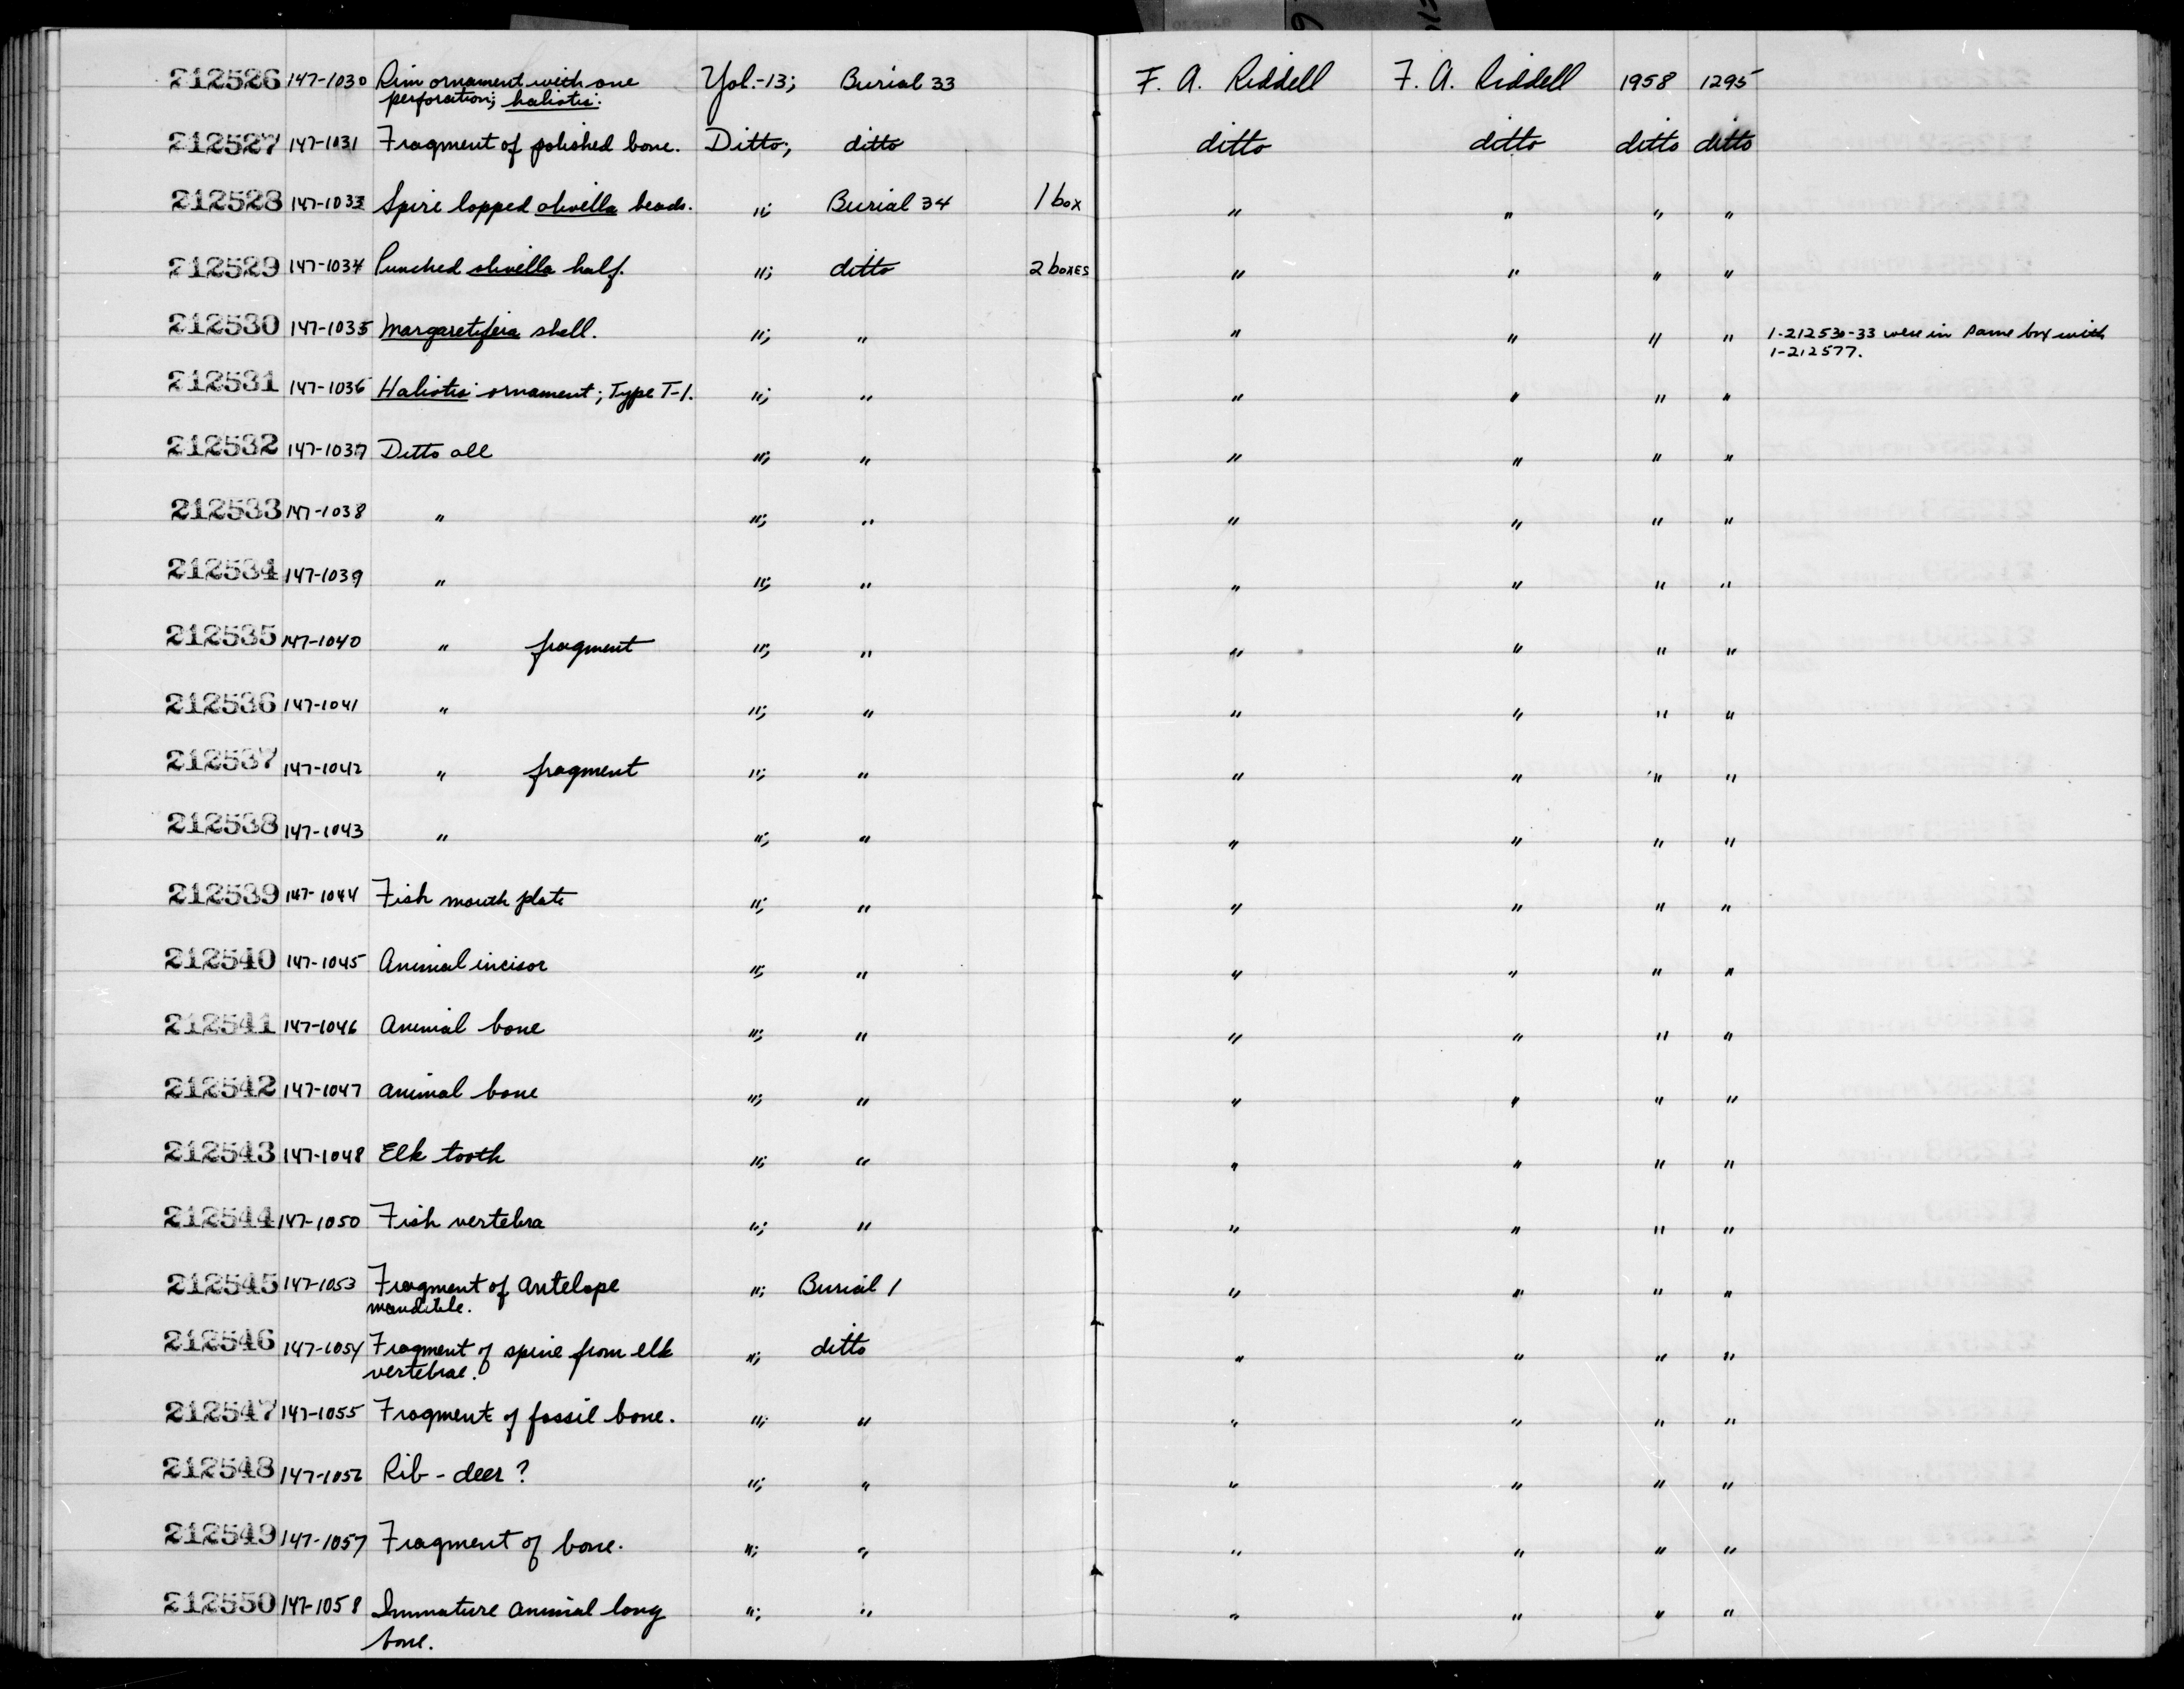 212526 147-1030 Rim ornament with one Yol.-13; Burial 33 F. A. Riddell F. A. Riddell 1958 1295
perforation; haliotis.
212527 147-1031 Fragment of polished bone. Ditto; ditto ditto ditto ditto ditto
212528 147-1033 Spire lopped olivella beads. "; Burial 34 1 box " " " "
212529 147-1034 Punched olivella half. "; ditto 2 boxes " " " "
212530 147-1035 Margaretifera shell. "; " " " " " 1-212530-33 were in same box with
1-212577.
212531 147-1036 Haliotis ornament; Type T-1. "; " " " " "
212532 147-1037 Ditto all "; " " " " "
212533 147-1038 " "; " " " " "
212534 147-1039 " "; " " " " "
212535 147-1040 " fragment "; " " " " "
212536 147-1041 " "; " " " " "
212537 147-1042 " fragment "; " " " " "
212538 147-1043 " "; " " " " "
212539 147-1044 Fish mouth plate "; " " " " "
212540 147-1045 Animal incisor "; " " " " "
212541 147-1046 Animal bone "; " " " " "
212542 147-1047 animal bone "; " " " " "
212543 147-1048 Elk tooth "; " " " " "
212544 147-1050 Fish vertebra "; " " " " "
212545 147-1053 Fragment of antelope "; Burial 1 " " " "
mandible.
212546 147-1054 Fragment of spine from elk "; ditto " " " "
vertebrae.
212547 147-1055 Fragment of fossil bone. "; " " " " "
212548 147-1056 Rib - deer? "; " " " " "
212549 147-1057 Fragment of bone. "; " " " " "
212550 147-1058 Immature animal long "; " " " " "
bone.